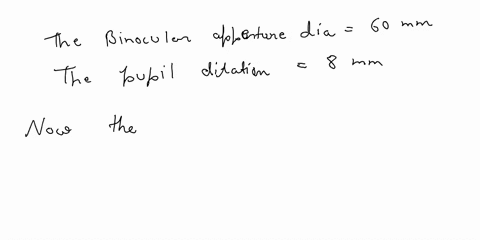 The Binocular apperture dia = 60 mm
The pupil dilation = 8 mm
Now the